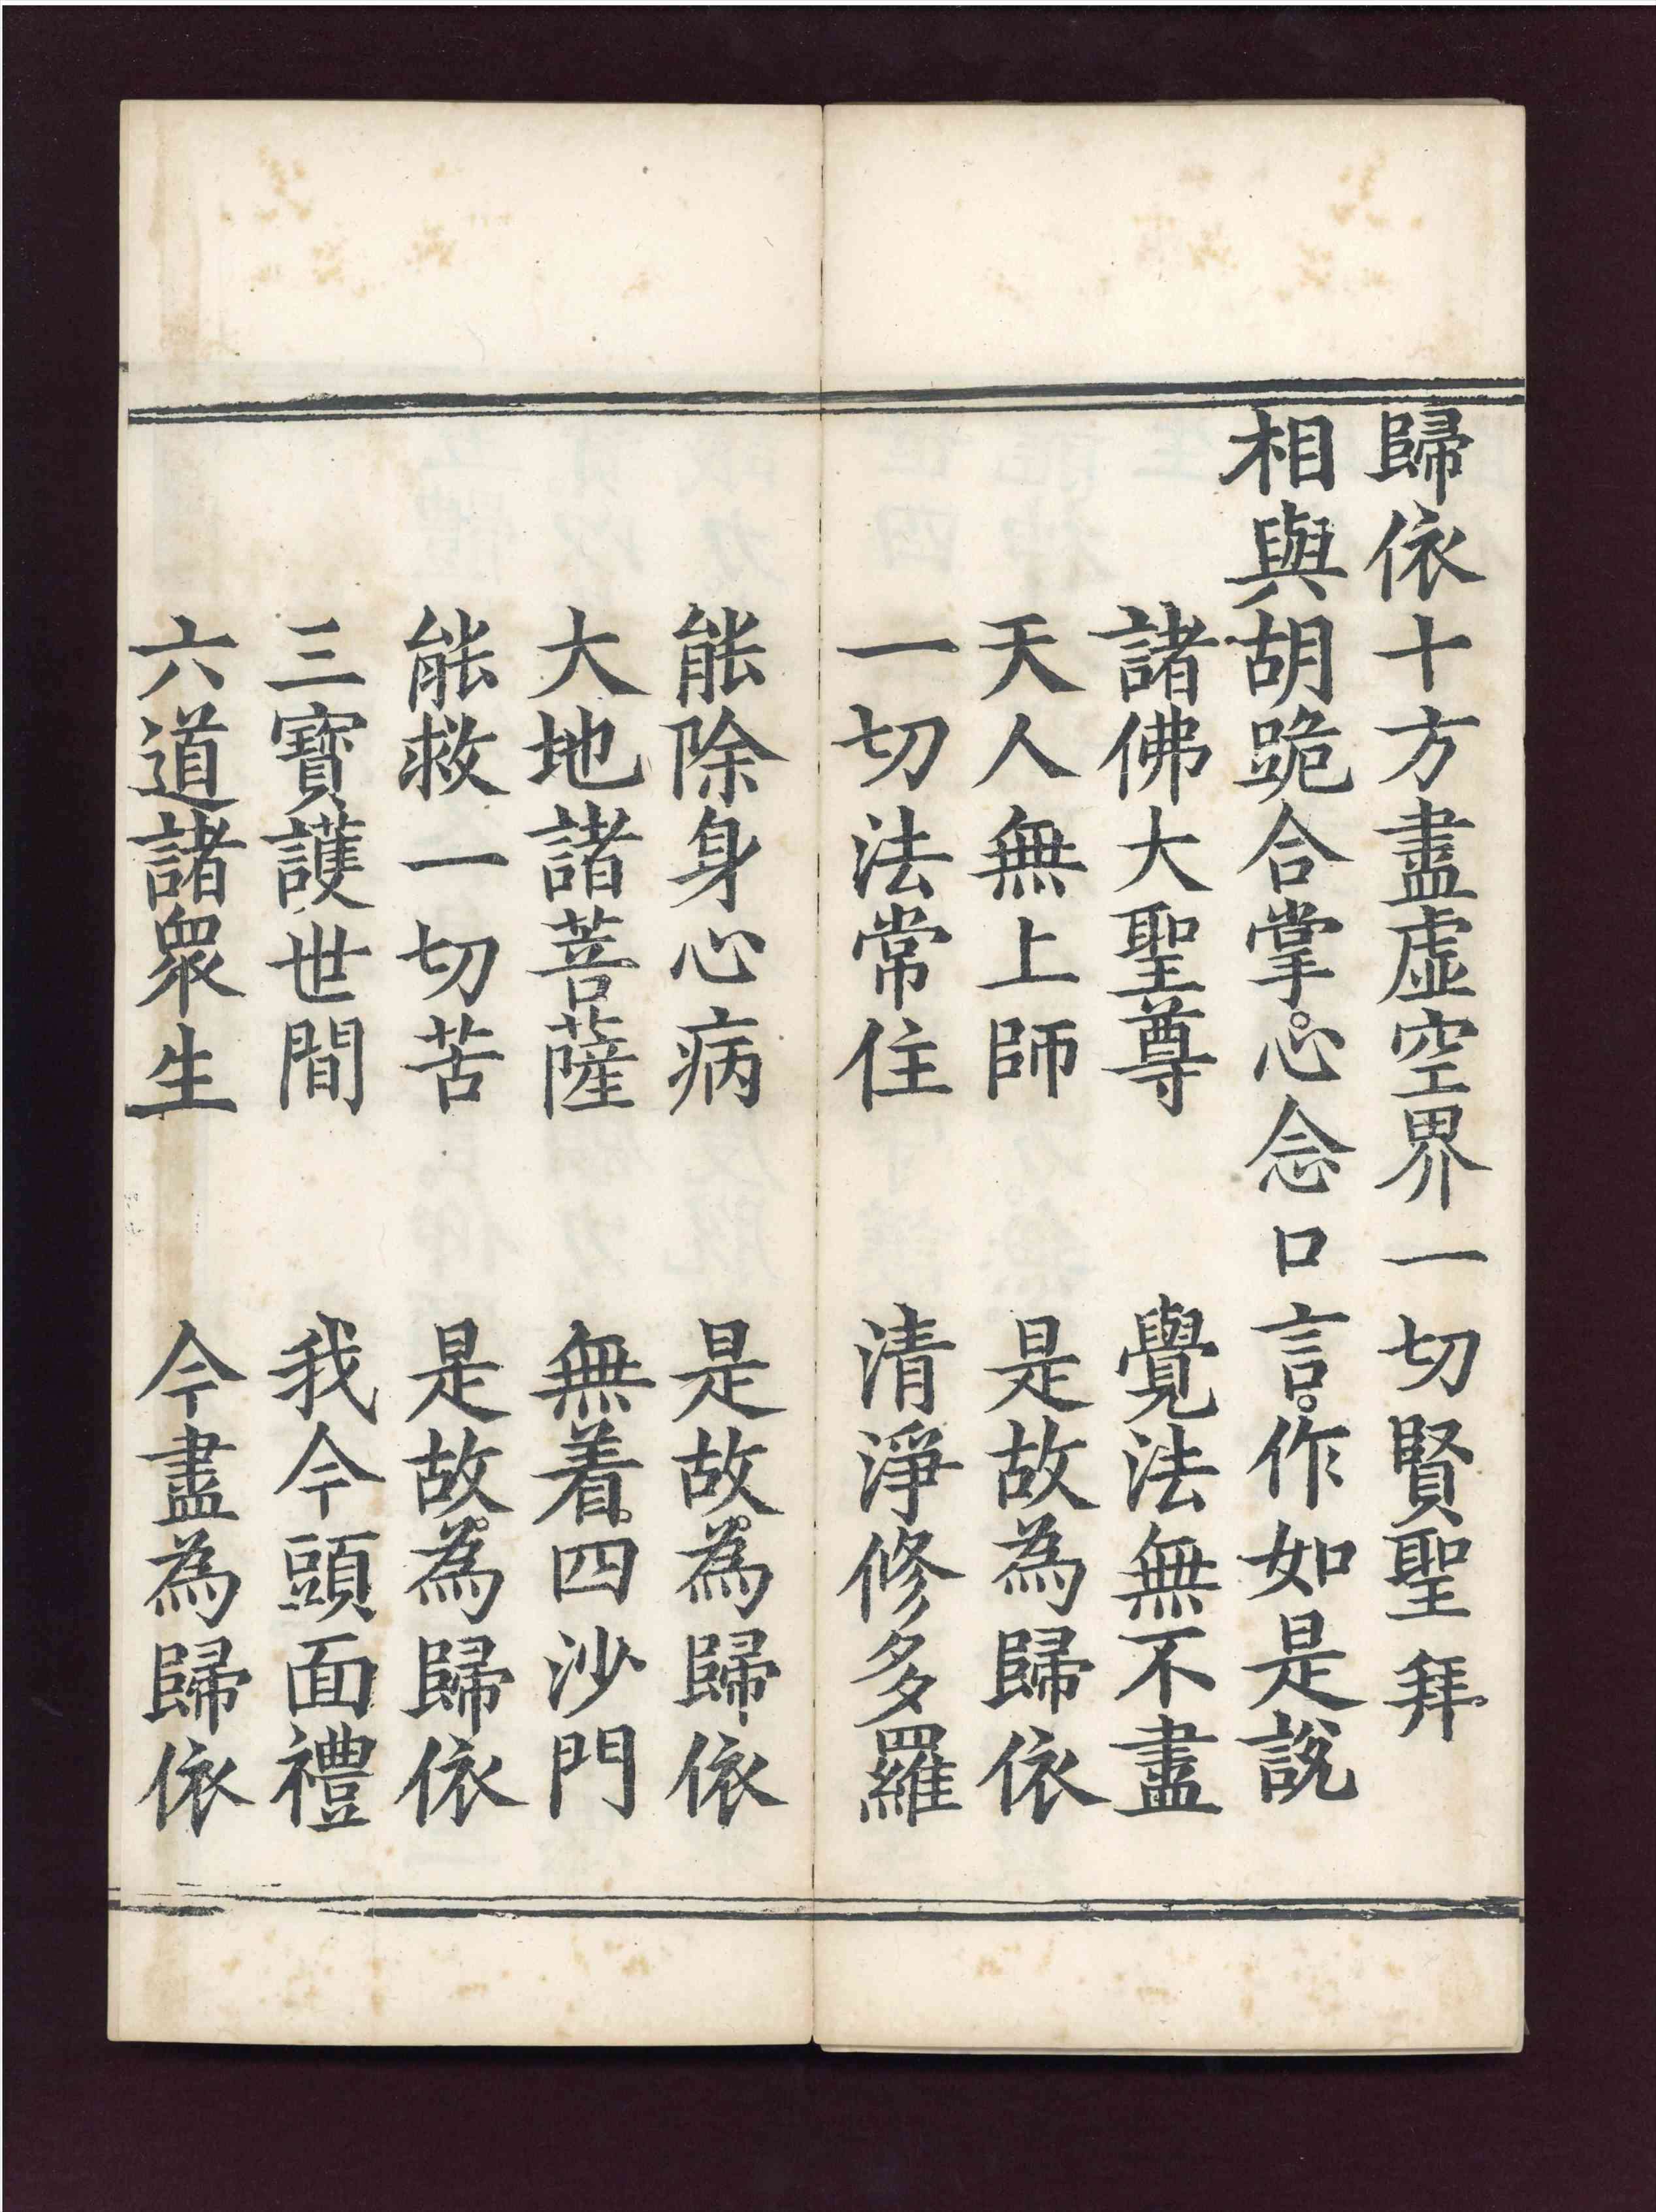 歸依十方盡虛空界一切賢聖拜
相與胡跪合掌。心念口言。作如是說
諸佛大聖尊　覺法無不盡
天人無上師　是故為歸依
一切法常住　清淨修多羅
能除身心病　是故。為歸依
大地諸菩薩　無着。四沙門
能救一切苦　是故。為歸依
三寶護世間　我今頭面禮
六道諸眾生　今盡為歸依